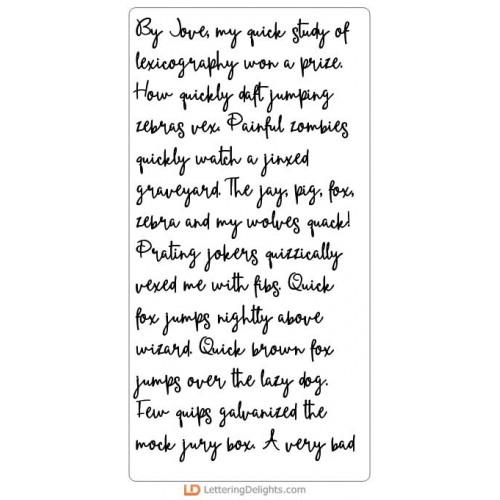 By Jove, my quick study of
lexicography won a prize.
How quickly daft jumping
zebras vex. Painful zombies
quickly watch a jinxed
graveyard. The jay, pig, fox,
zebra and my wolves quack!
Prating jokers quizzically
vexed me with fibs. Quick
fox jumps nightly above
wizard. Quick brown fox
jumps over the lazy dog.
Few quips galvanized the
mock jury box. A very bad
LD LetteringDelights.com